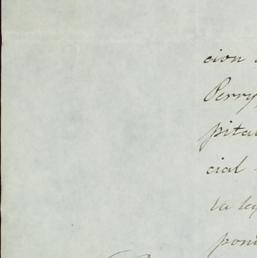 cion
Perry
pita
cial
la ley
poni